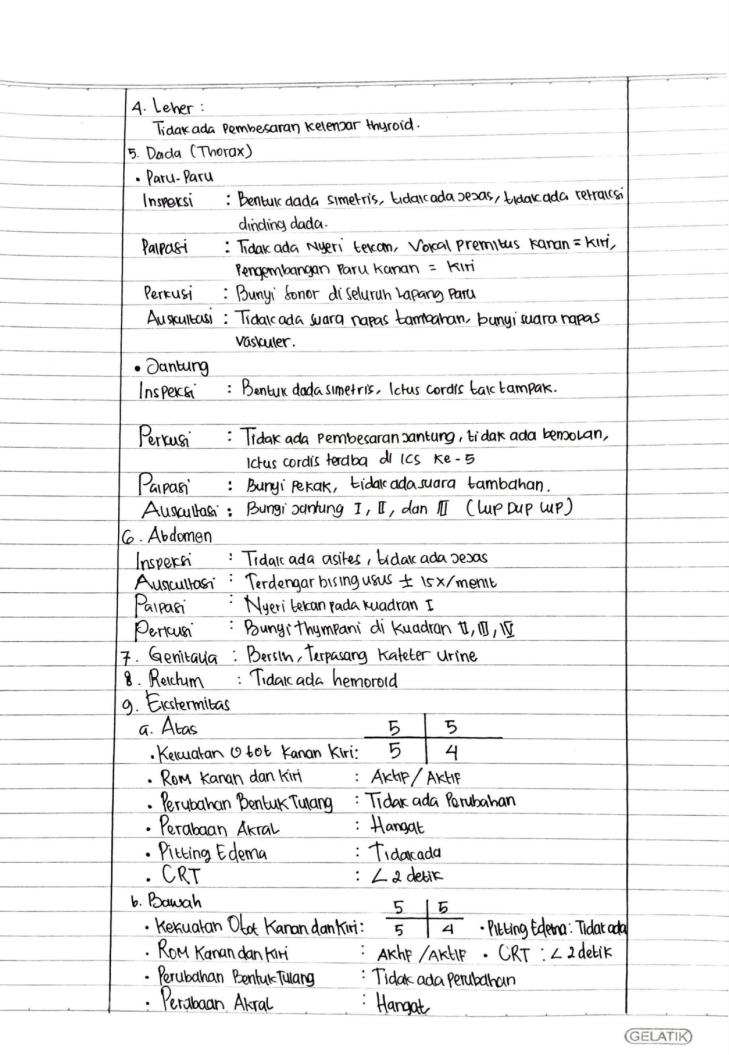 4. Leher :
Tidak ada Pembesaran kelenjar thyroid.
5. Dada (Thorax)
• Paru-Paru
Inspeksi : Bentuk dada simetris, tidak ada sesas, tidak ada retraksi
dinding dada.
Palpasi : Tidak ada Nyeri tekan, Vokal Premitus kanan = kiri,
Pengembangan Paru kanan = kiri
Perkusi : Bunyi Sonor di seluruh lapang Paru
Auskultasi : Tidak ada suara napas tambahan, bunyi suara napas
vaskuler.
• Jantung
Inspeksi : Bentuk dada simetris, Ictus cordis tak tampak.
Perkusi : Tidak ada Pembesaran jantung, tidak ada benjolan,
Ictus cordis teraba di ICS ke-5
Palpasi : Bunyi Pekak, tidak ada suara tambahan.
Auscultasi : Bungi jantung I, II, dan III (LUP DUP LUP)
6. Abdomen
Inspeksi : Tidak ada asites, tidak ada jejas
Auscultasi : Terdengar bising usus ± 15x/menit
Palpasi : Nyeri tekan pada kuadran I
Perkusi : Bunyi thympani di kuadran II, III, IV
7. Genitalia : Bersih, Terpasang Kateter Urine
8. Rektum : Tidak ada hemoroid
9. Ekstermitas
a. Atas 5 | 5
• Kekuatan Otot Kanan Kiri: 5 | 4
• ROM Kanan dan Kiri : Aktip / Aktip
• Perubahan Bentuk Tulang : Tidak ada Perubahan
• Perabaan Akral : Hangat
• Pitting Edema : Tidak ada
• CRT : < 2 detik
b. Bawah 5 | 5
• Kekuatan Otot Kanan dan Kiri: 5 | 4 • Pitting Edema: Tidak ada
• ROM Kanan dan Kiri : Aktip / Aktip • CRT : < 2 detik
• Perubahan Bentuk Tulang : Tidak ada Perubahan
• Perabaan Akral : Hangat
GELATIK